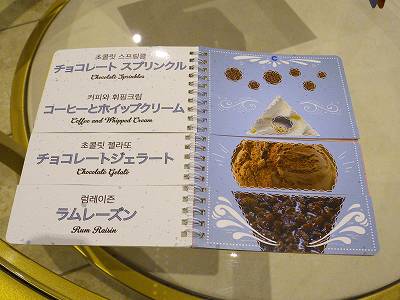 초콜릿 스프링클
チョコレート スプリンクル
Chocolate Sprinkles
커피와 휘핑크림
コーヒーとホイップクリーム
Coffee and Whipped Cream
초콜릿 젤라또
チョコレートジェラート
Chocolate Gelato
럼레이즌
ラムレーズン
Rum Raisin
C